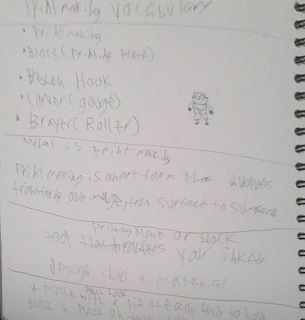 Printmaking Vocabulary
• Printmaking
• Block (Printing Plate)
• Bench Hook
• Carver (gouge)
• Brayer (Roller)
What is print making
Printmaking is an art form that involves
transfering an image from surface to surface
Printing Plate or block
tool that transfers your inked
design into a material
Bench hook
A plate with a lip on each end to hold
block in place